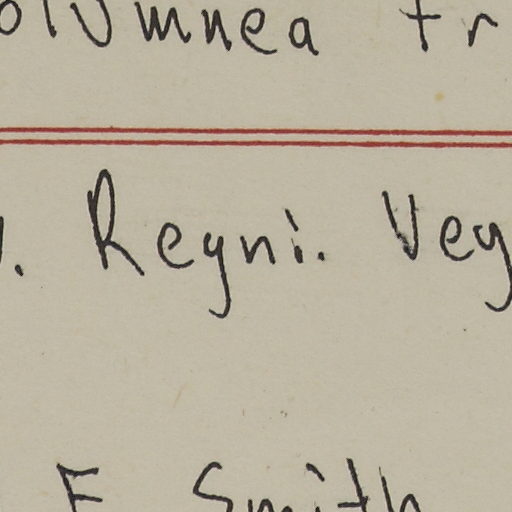 olumnea tr
. Regni. Veg
F. Smith